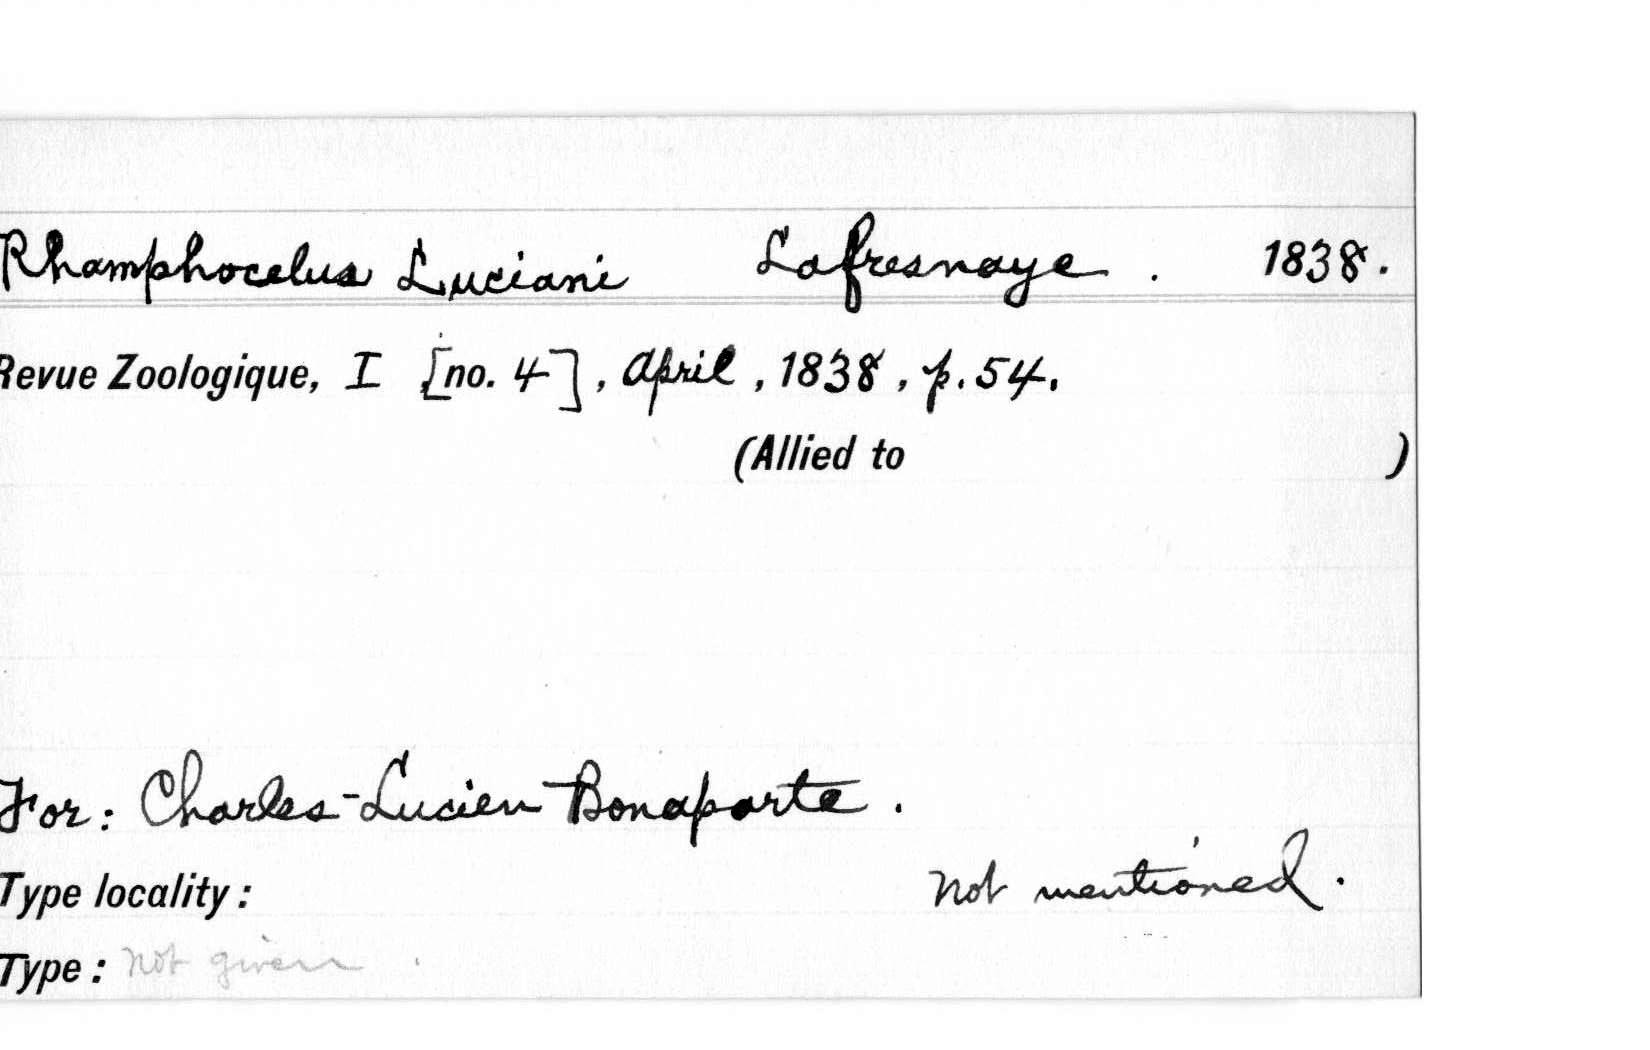 Rhamphocelus Luciani Lafresnaye. 1838.
Revue Zoologique, I [no. 4], April, 1838, p. 54.
(Allied to )
For: Charles-Lucien Bonaparte.
Type locality: not mentioned.
Type: not given.